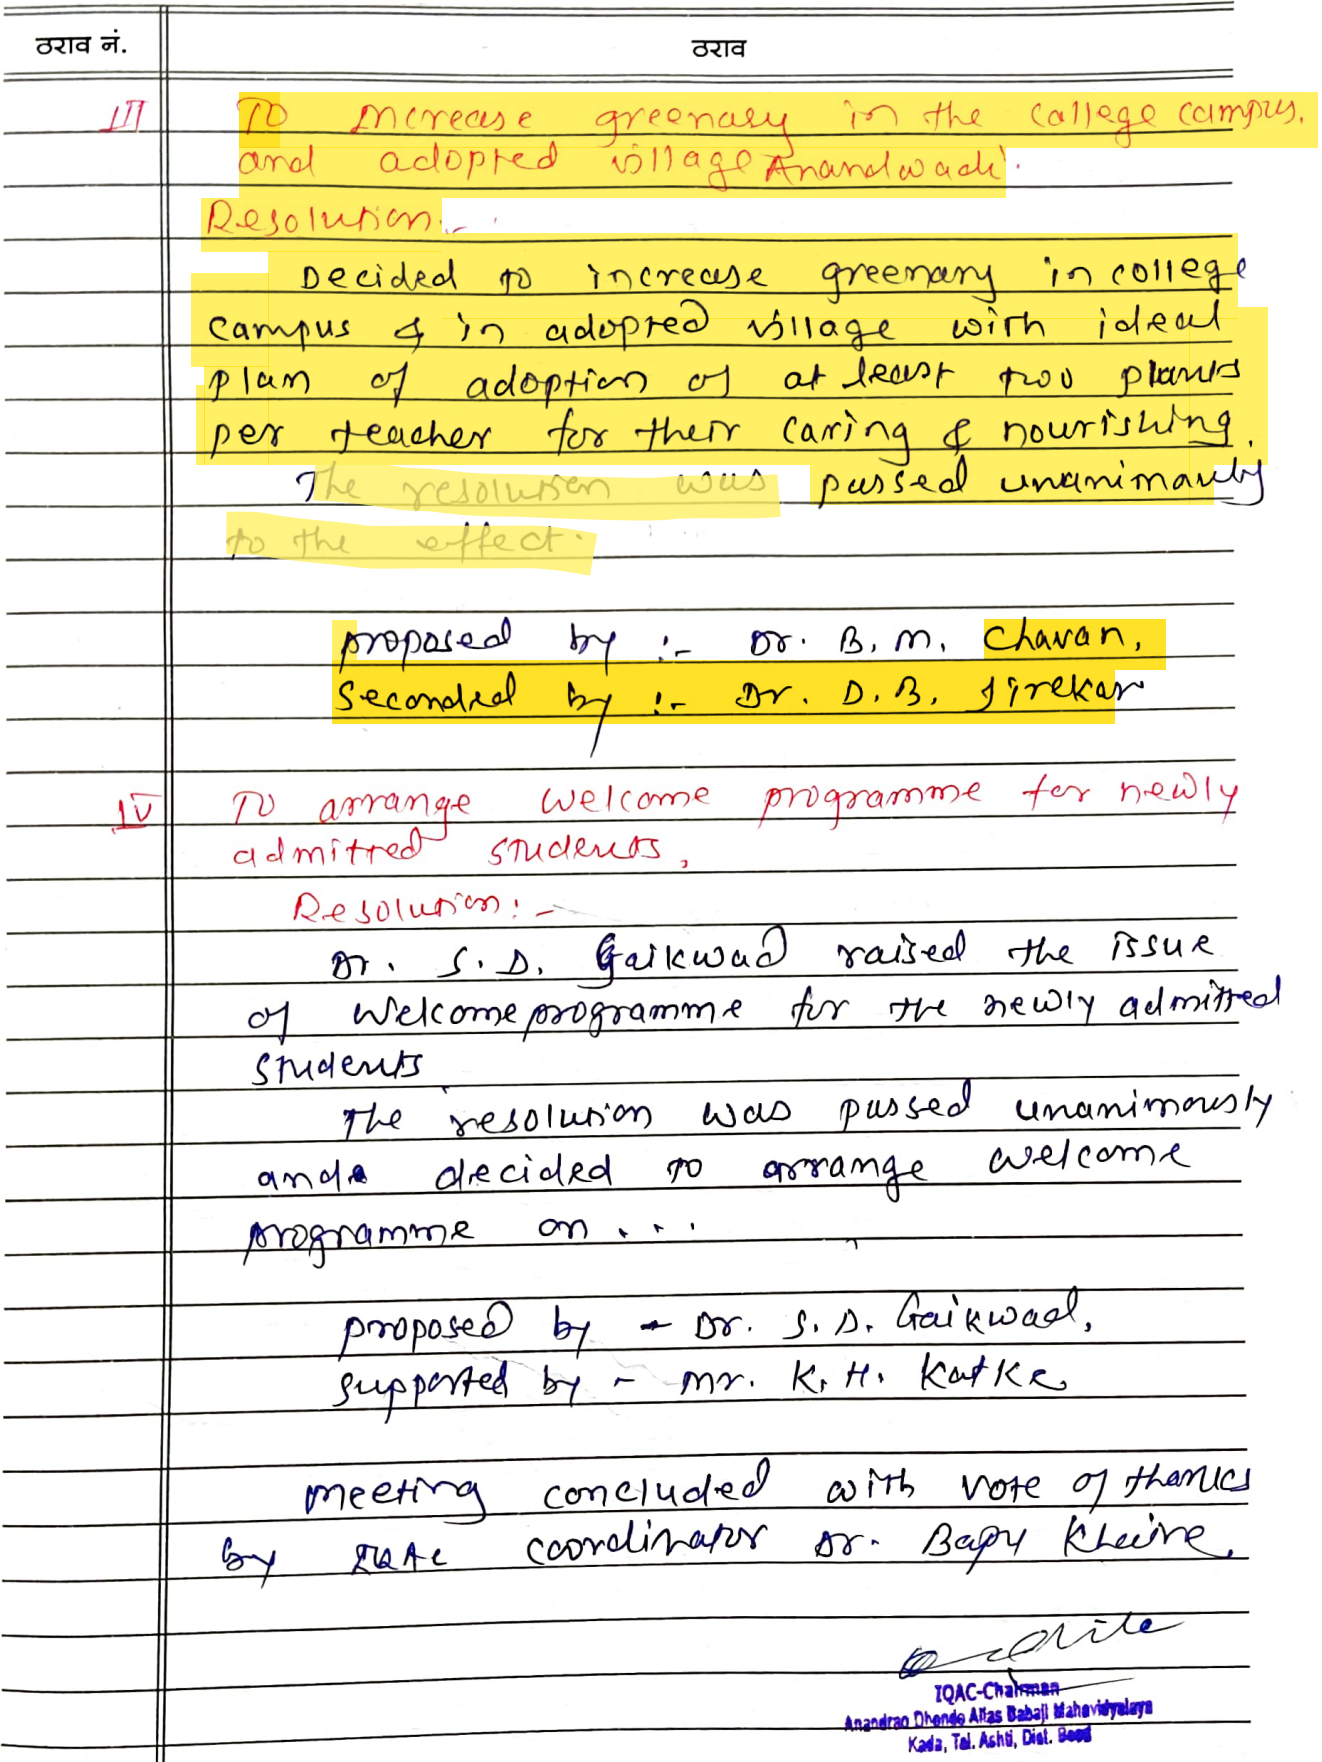 ठराव नं.
ठराव
III To increase greenary in the college campus.
and adopted village Anandwadi.
Resolution:-
Decided to increase greenary in college
campus & in adopted village with ideal
plan of adoption of at least two plants
per teacher for their caring & nourishing.
The resolution was passed unanimously
to the effect.
proposed by :- Dr. B. M. Chavan,
Seconded by :- Dr. D. B. Jirekar
IV To arrange welcome programme for newly
admitted students,
Resolution:-
Dr. S. D. Gaikwad raised the issue
of welcome programme for the newly admitted
students
The resolution was passed unanimously
and decided to arrange welcome
programme on ....
proposed by - Dr. S. D. Gaikwad,
supported by - Mr. K. H. Katke,
Meeting concluded with vote of thanks
by IQAC coordinator Dr. Bapu Khaire.
IQAC-Chairman
Anandrao Dhonde Alias Babaji Mahavidyalaya
Kada, Tal. Ashti, Dist. Beed